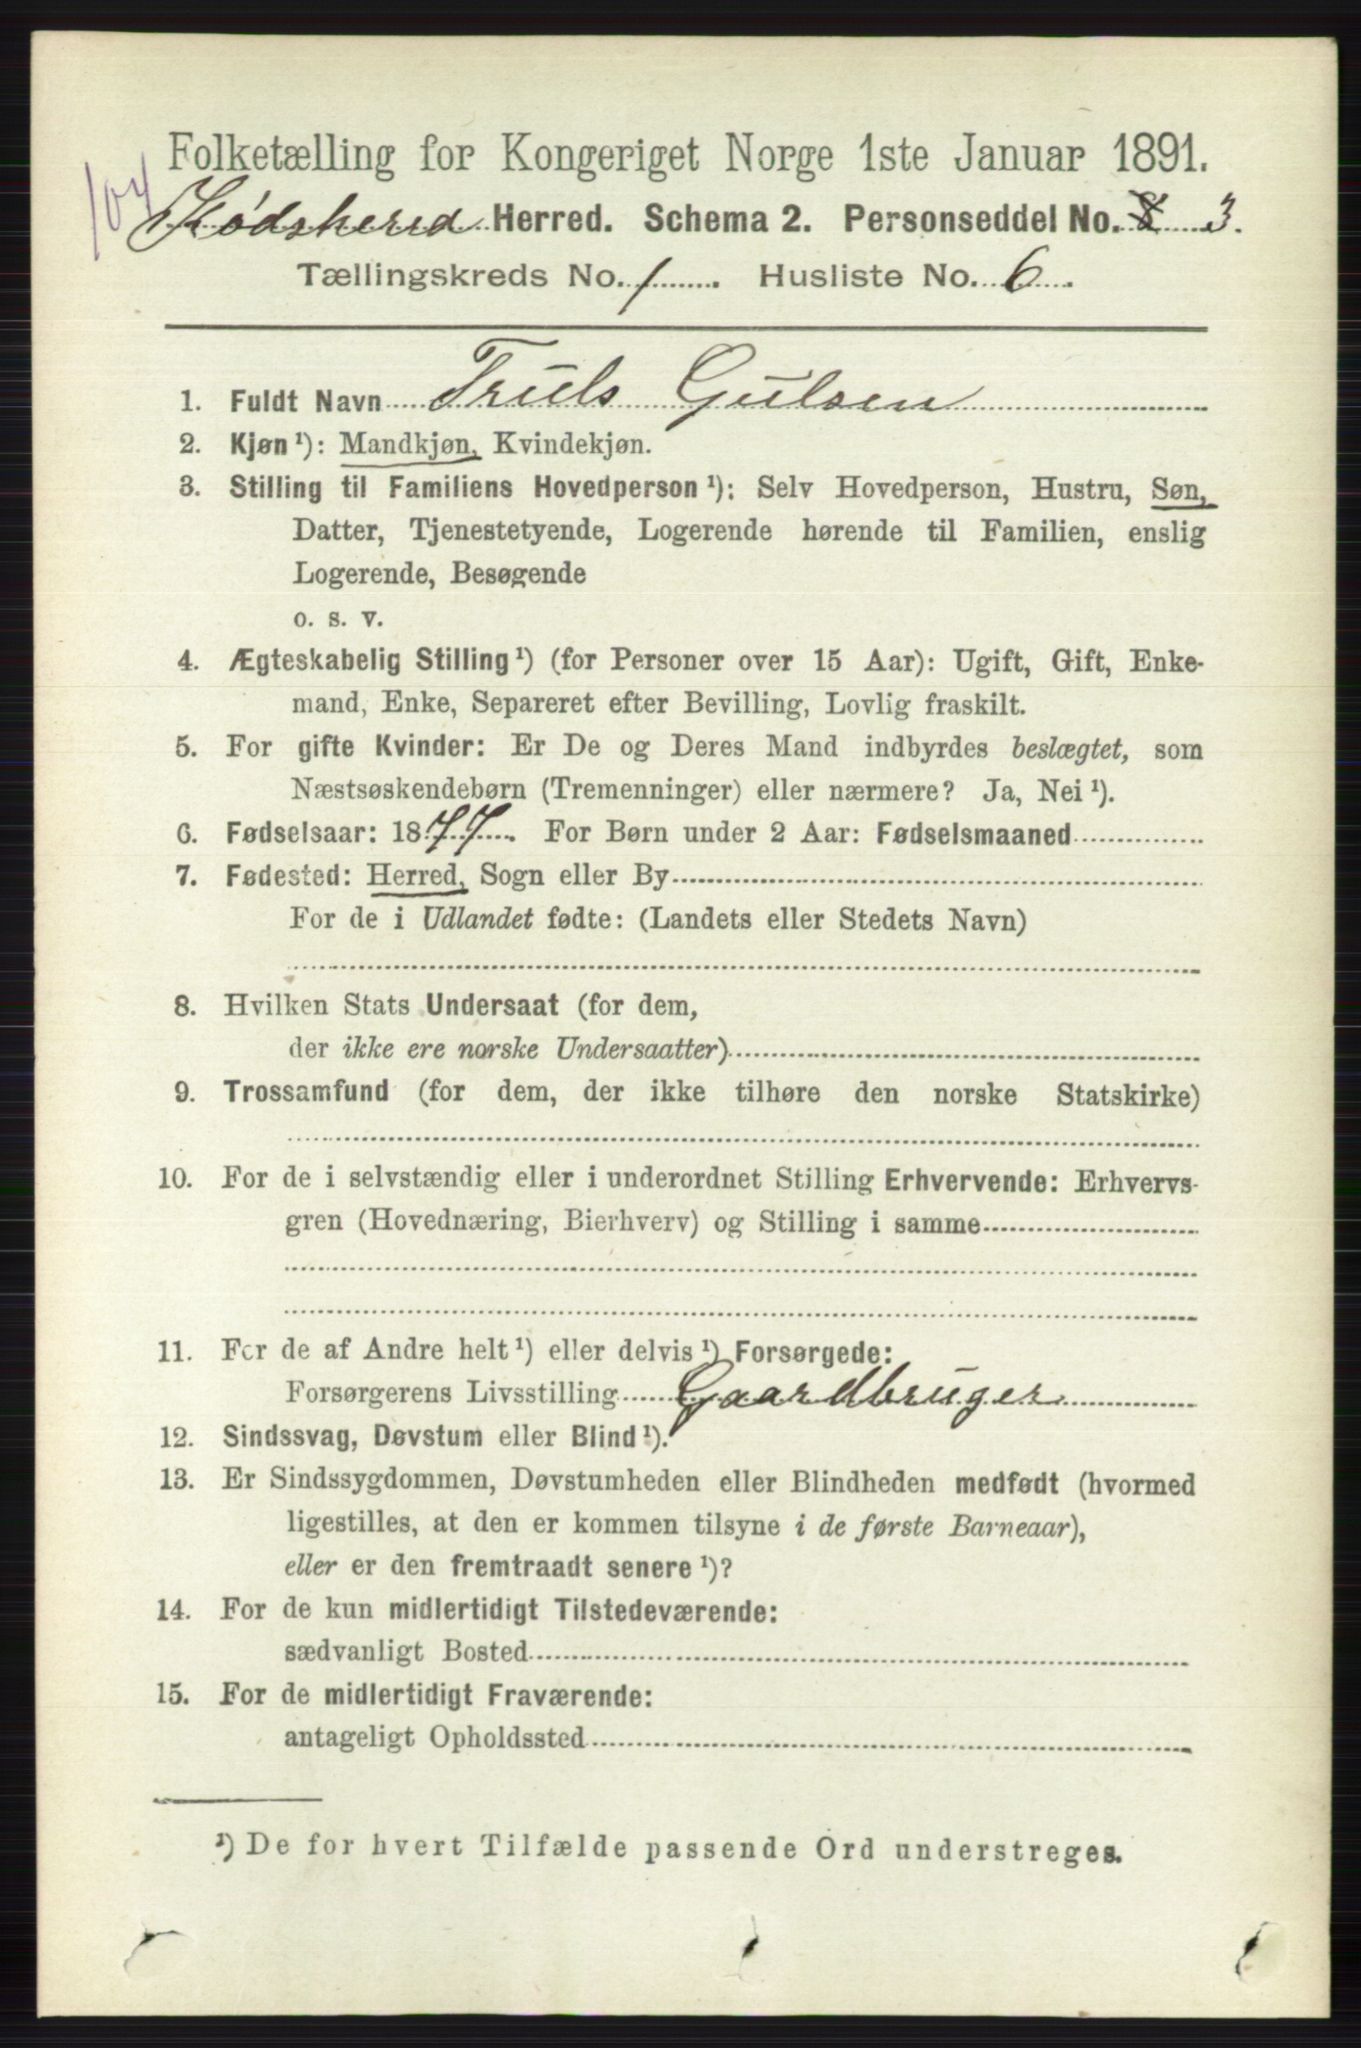 Folketælling for Kongeriget Norge 1ste Januar 1891.
104
Kødsherred Herred. Schema 2. Personseddel No. 3.
Tællingskreds No. 1. Husliste No. 6.
1. Fuldt Navn Truls Gulsen
2. Kjøn ¹): Mandkjøn, Kvindekjøn.
3. Stilling til Familiens Hovedperson ¹): Selv Hovedperson, Hustru, Søn,
Datter, Tjenestetyende, Logerende hørende til Familien, enslig
Logerende, Besøgende
o. s. v.
4. Ægteskabelig Stilling ¹) (for Personer over 15 Aar): Ugift, Gift, Enke-
mand, Enke, Separeret efter Bevilling, Lovlig fraskilt.
5. For gifte Kvinder: Er De og Deres Mand indbyrdes beslægtet, som
Næstsøskendebørn (Tremenninger) eller nærmere? Ja, Nei ¹).
6. Fødselsaar: 1877. For Børn under 2 Aar: Fødselsmaaned
7. Fødested: Herred, Sogn eller By
For de i Udlandet fødte: (Landets eller Stedets Navn)
8. Hvilken Stats Undersaat (for dem,
der ikke ere norske Undersaatter)
9. Trossamfund (for dem, der ikke tilhøre den norske Statskirke)
10. For de i selvstændig eller i underordnet Stilling Erhvervende: Erhvervs-
gren (Hovednæring, Bierhverv) og Stilling i samme
11. For de af Andre helt ¹) eller delvis ¹) Forsørgede:
Forsørgerens Livsstilling Gaardbruger
12. Sindssvag, Døvstum eller Blind ¹).
13. Er Sindssygdommen, Døvstumheden eller Blindheden medfødt (hvormed
ligestilles, at den er kommen tilsyne i de første Barneaar),
eller er den fremtraadt senere ¹)?
14. For de kun midlertidigt Tilstedeværende:
sædvanligt Bosted
15. For de midlertidigt Fraværende:
antageligt Opholdssted
¹) De for hvert Tilfælde passende Ord understreges.